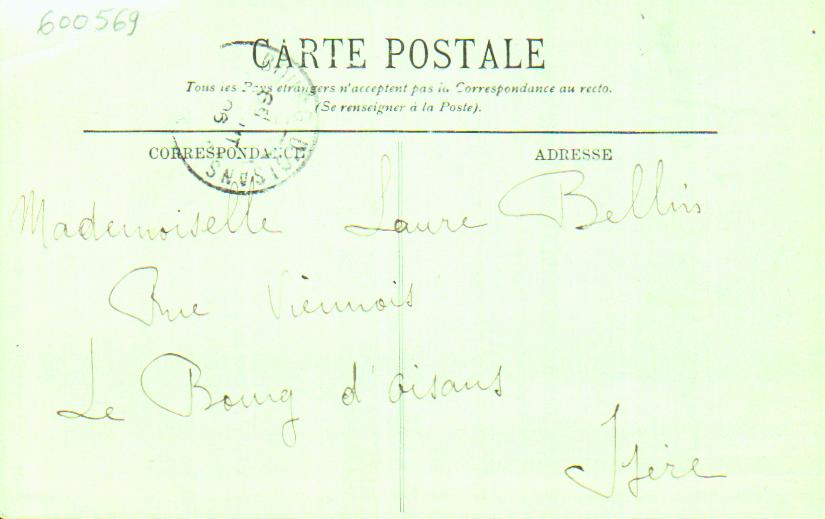 600569
CARTE POSTALE
Tous les Pays étrangers n'acceptent pas la Correspondance au recto.
(Se renseigner à la Poste).
CORRESPONDANCE
ADRESSE
Mademoiselle Laure Bellin
Rue Viennois
Le Bourg d'oisans
Isère